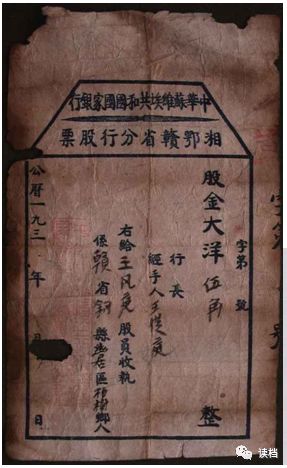 中華蘇維埃共和國國家銀行
湘鄂贛省分行股票
字第　號
股金大洋伍角　整
行長
經手人
右給王　股員收執
係贛省　縣　居區　鄉人
公曆一九三　年　月　日
读档